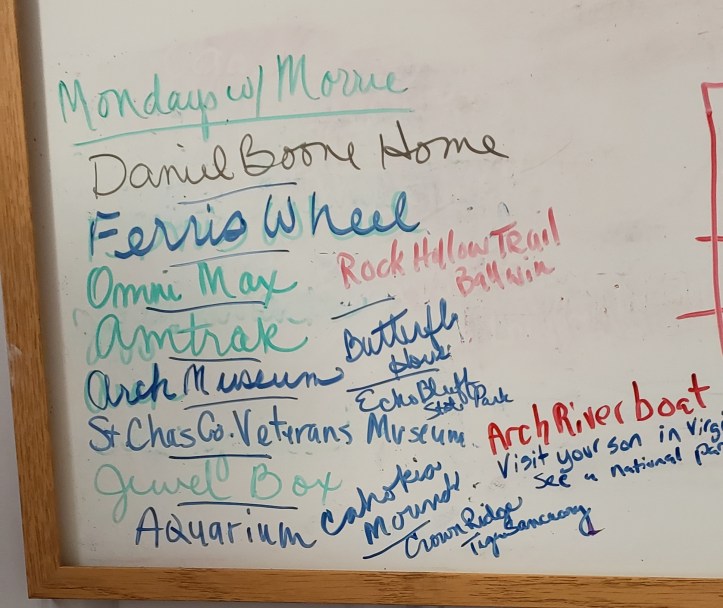 Mondays w/ Morrie
Daniel Boone Home
Ferris Wheel
Omni Max
Rock Hollow Trail
Ballwin
Amtrak
Butterfly
House
Arch Museum
Echo Bluff
State Park
St. Chas Co. Veterans Museum
Arch Riverboat
Visit your son in Virgi
See a national par
Jewel Box
Cahokia
Mounds
Aquarium
Crown Ridge
Tiger Sancrary